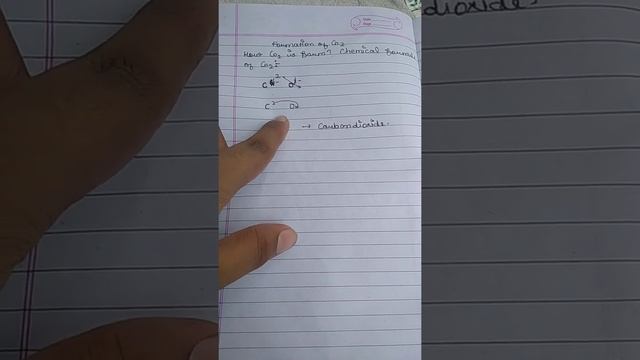 Formation of Co2
How Co2 is Form? Chemical Formula
of Co2:
C 2 O
C 2 O
→ Carbondioxide.
dioxide.